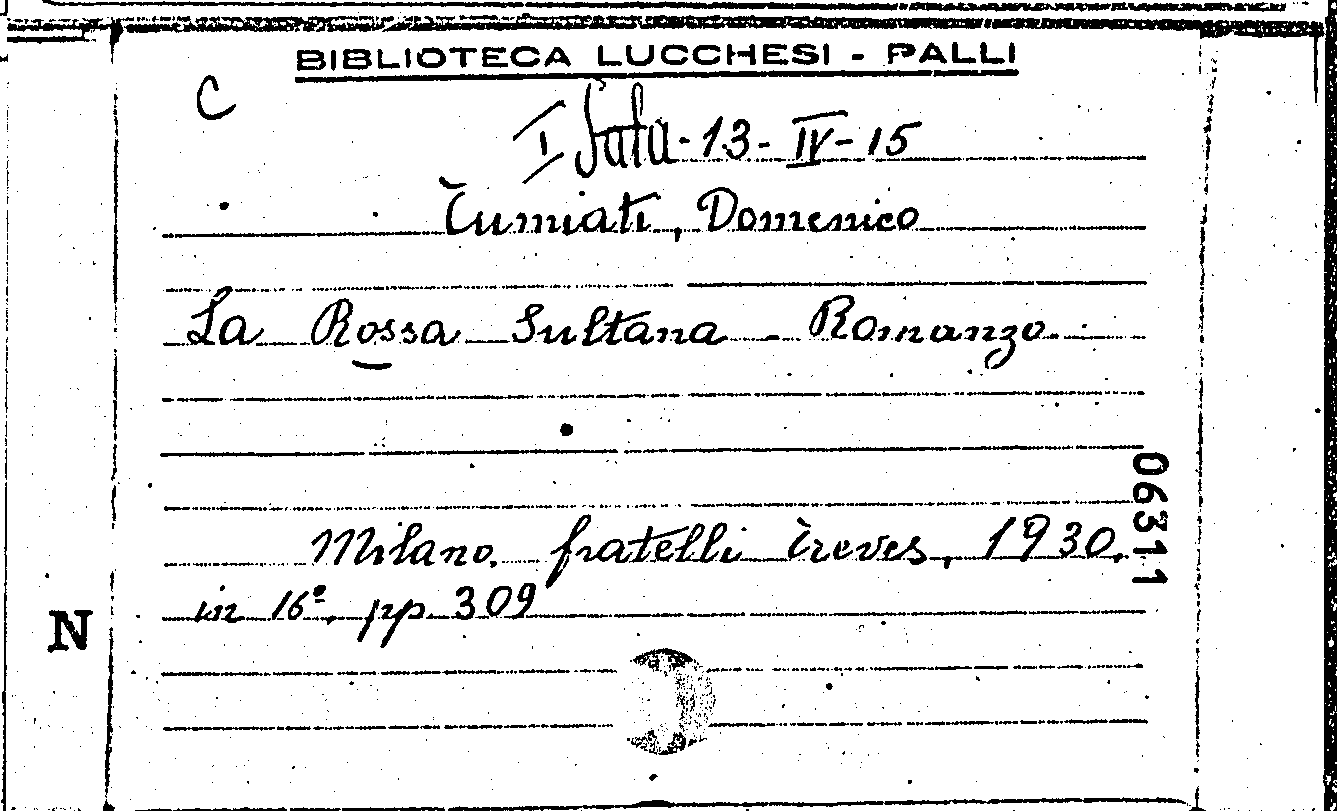 BIBLIOTECA LUCCHESI - PALLI
C
I Sala-13-IV-15
Tumiati, Domenico
La Rossa Sultana - Romanzo.
06311
Milano. fratelli Treves, 1930.
in 16º. pp. 309
N